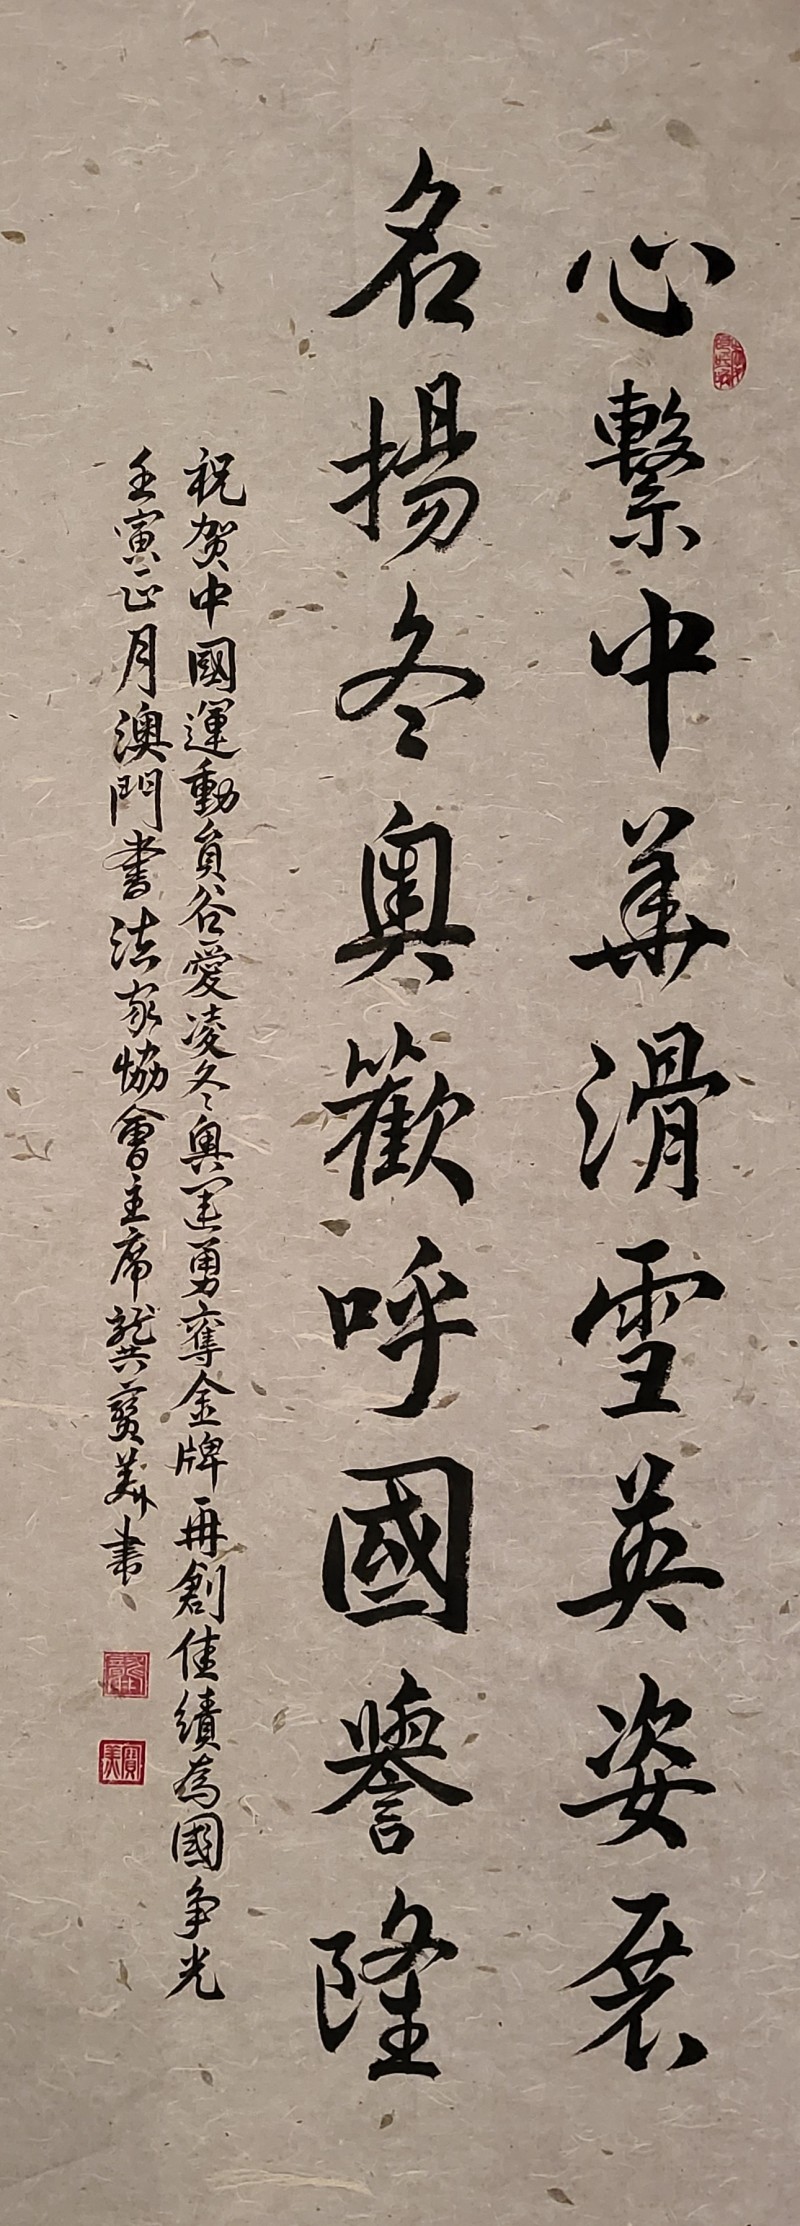 心繫中華滑雪英姿展
名揚冬奧歡呼國譽隆
祝贺中國運動員谷愛凌冬奧運勇奪金牌再創佳績為國争光
壬寅正月澳門書法家協會主席龔寶美書
寶美